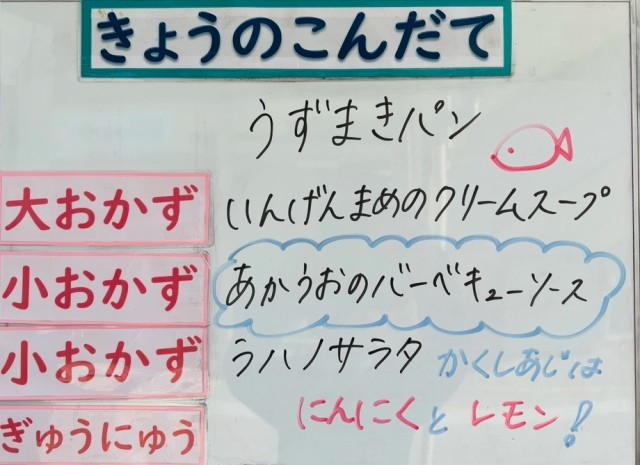 きょうのこんだて
うずまきパン
大おかず いんげんまめのクリームスープ
小おかず あかうおのバーベキューソース
小おかず ラハノサラタ かくしあじは
ぎゅうにゅう にんにくと レモン!